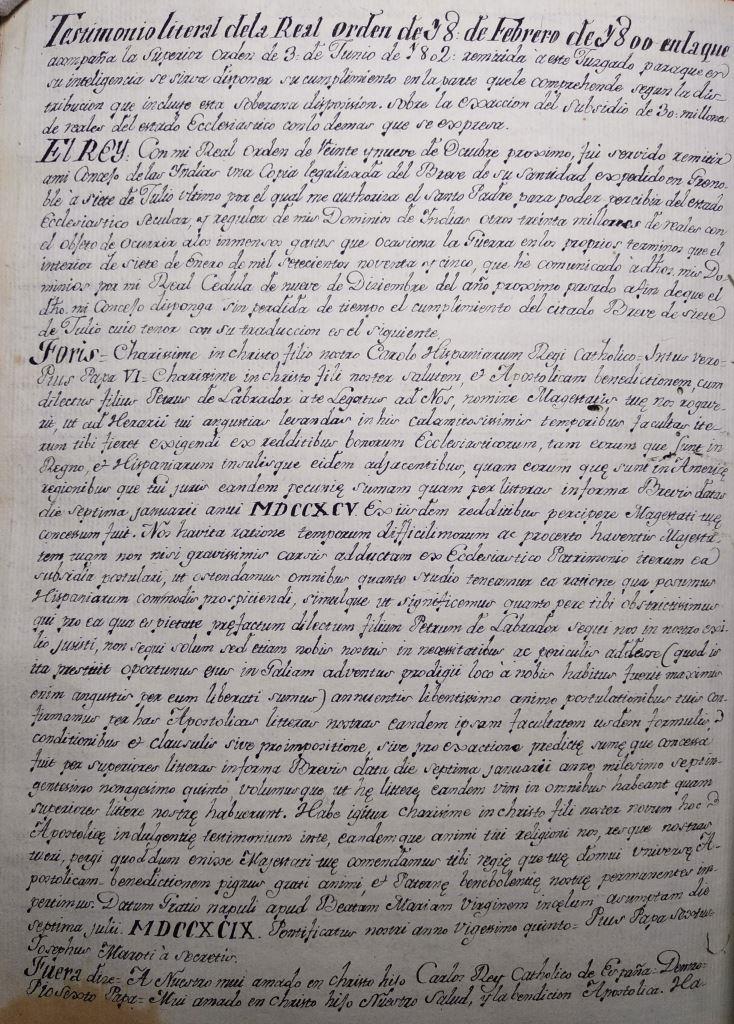 Testimonio literal dela Real orden de 18 de Febrero de 1800 enla que
acompaña la Superior orden de 3 de Junio de 1802 remitida à este Juzgado paraque en
su inteligencia se sirva disponer su cumplimiento en la parte quele comprehende segun la dis-
tribucion que incluye esta soberana disposision. sobre la exaccion del Subsidio de 30 millones
de reales del estado Ecclesiastico conlo demas que se expresa.
El REY. Con mi Real orden de Veinte y nueve de Octubre proximo, fui servido remitir
ami Consejo de las Yndias una Copia legalizada del Breve de su Santidad expedido en Greno-
ble à siete de Julio ultimo por el qual me authoriza el Santo Padre, para poder percibir del estado
Ecclesiastico Secular, y regular de mis Dominios de Yndias otros treinta millones de reales con
el objeto de ocurrir alos inmensos gastos que ocasiona la Guerra enlos proprios terminos que el
interior de siete de Enero de mil setecientos noventa y cinco, que hè comunicado à dhos. mis Do-
minios por mi Real Cedula de nueve de Diziembre del año proximo pasado afin deque el
dho. mi Consejo disponga sin perdida de tiempo el cumplimiento del citado Breve de siete
de Julio cuio tenor con su traduccion es el siguiente
Foris= Charissime in christo filio nostro Carolo Hispaniarum Regi Catholico= Intus vero=
Pius Papa VI= Charissime in christo fili noster salutem, et Apostolicam benedictionem, cum
dilectus filius Petrus de Labrador a te Legatus ad Nos, nomine Magestatis tuę nos rogave-
rit, ut ad Herarii tui angustias levandas in his calamitosissimis temporibus facultas ite-
rum tibi fieret exigendi ex redditibus bonorum Ecclesiasticorum, tam eorum que sunt in
Regno, et Hispaniarum insulisque eidem adjacentibus, quam eorum quę sunt in Americę
regionibus que tui juris eandem pecunię sumam quam per litteras informa Brevis datas
die septima januarii anni MDCCXCV. Ex iisdem redditibus percipere Magestati tuę
concessum fuit. Nos havita ratione temporum difficilimorum ac procerto haventes Majesta-
tem tuam non nisi gravissimis causis adductam ex Ecclesiastico Patrimonio iterum ea
subsidia postulari, ut ostendamus omnibus quanto studio teneamur ea ratione qua possumus
Hispaniarum commodis prospiciendi, simulque ut significemus quanto pere tibi obstrictissimus
qui pro ea qua es pietate prefactum dilectum filium Petrum de Labrador sequi nos in nostro exi-
lio jusisti, non sequi solum sed etiam nobis nostris in necessitatibus ac periculis addesse (quod is
ita prestitit oportunus ejus in Galiam adventus prodigii loco à nobis habitus fuerit maximis
enim angustiis per eum liberati sumus) annuentes libentissimo animo postulationibus tuis con-
firmamus per has Apostolicas litteras nostras eandem ipsam facultatem iisdem formulis,
conditionibus et clausulis sive proimpositione, sive pro exactione predictę sumę que concessa
fuit per superiores litteras informa Brevis datu die septima januarii anno milesimo septin-
gentesimo nonagesimo quinto volumusque ut hę litterę eandem vim in omnibus habeant quam
superiores littere nostrę habuerunt. Habe igitur charissime in christo fili noster novum hoc
Apostolicę indulgentię testimonium inte, eandemque animi tui religioni nos, resque nostras
tueri, pergi quod dum enixe Majestati tuę comendamus tibi regię que tuę domui universę A-
postolicam benedictionem pignus grati animi, et Paternę benebolentię nostrę permanentes im-
pertimus. Datum Gratio napuli apud Beatam Mariam Virginem incelum asumptam die
septima julii MDCCXCIX. Pontificatus nostri anno vigessimo quinto= Pius Papa Sextus=
Josephus Maroti à Secretis.
Fuera dize= A Nuestro mui amado en christo hijo Carlos Rey Catholico de España= Dentro=
Pio Sexto Papa= Mui amado en christo hijo Nuestro Salud, y la bendicion Apostolica. Ha-